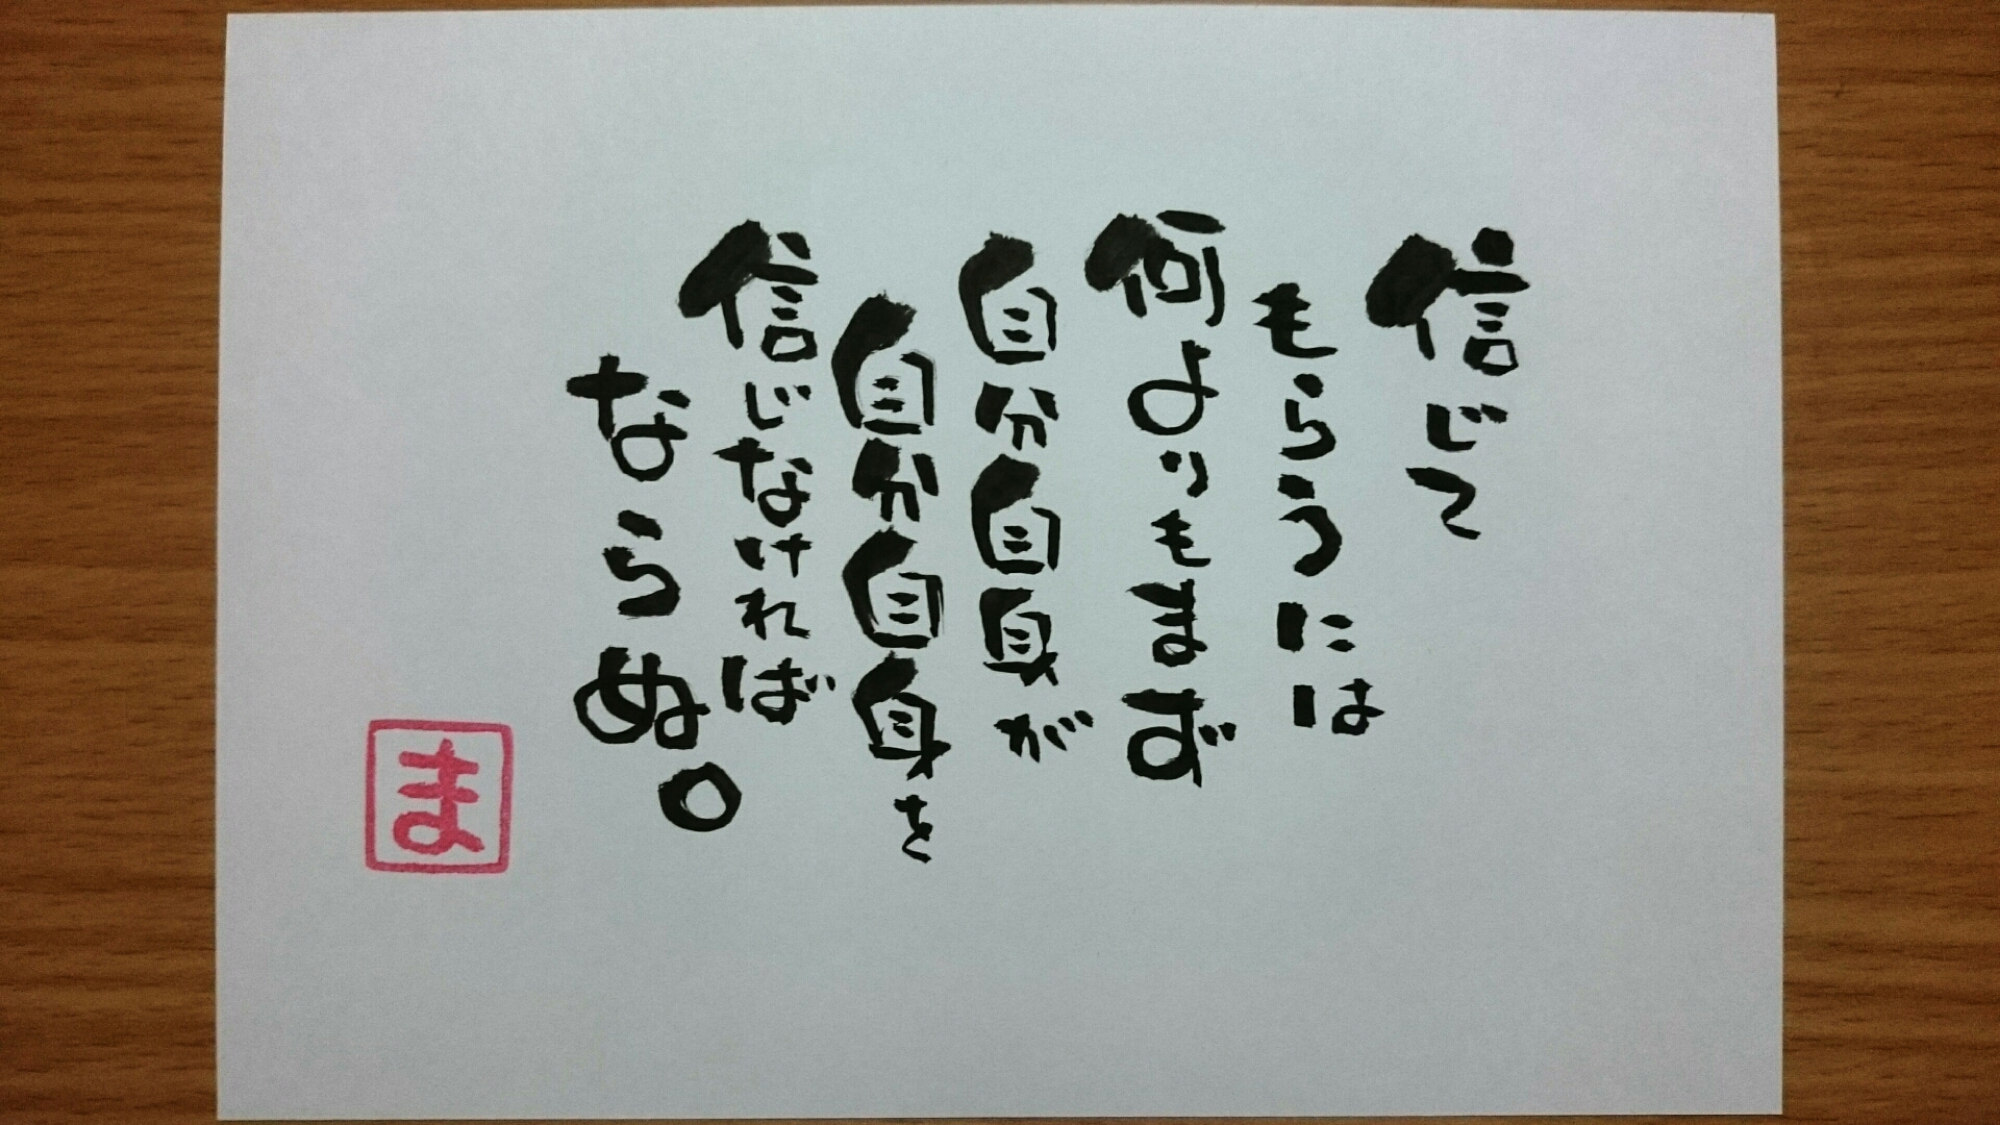 信じて
もらうには
何よりもまず
自分自身が
自分自身を
信じなければ
ならぬ。
ま